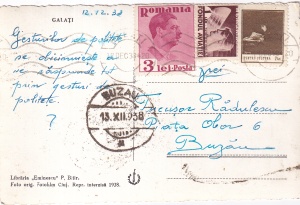 GALAȚI
12.12.38
Gesturilor de politețe
se obicinuiește a
se răspunde tot
prin gesturi de
politețe.
?
3 Lei-Posta
ROMANIA
FONDUL AVIAȚIEI
BUZAU
13.XII.938
Trei
Tricusor Rădulescu
Piața Obor 6
Buzău
Librăria „Eminescu" P. Bitir.
Foto orig. Fotofilm Cluj. Repr. interzisă 1938.